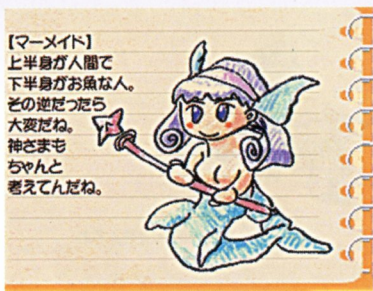 【マーメイド】
上半身が人間で
下半身がお魚な人。
その逆だったら
大変だね。
神さまも
ちゃんと
考えてんだね。